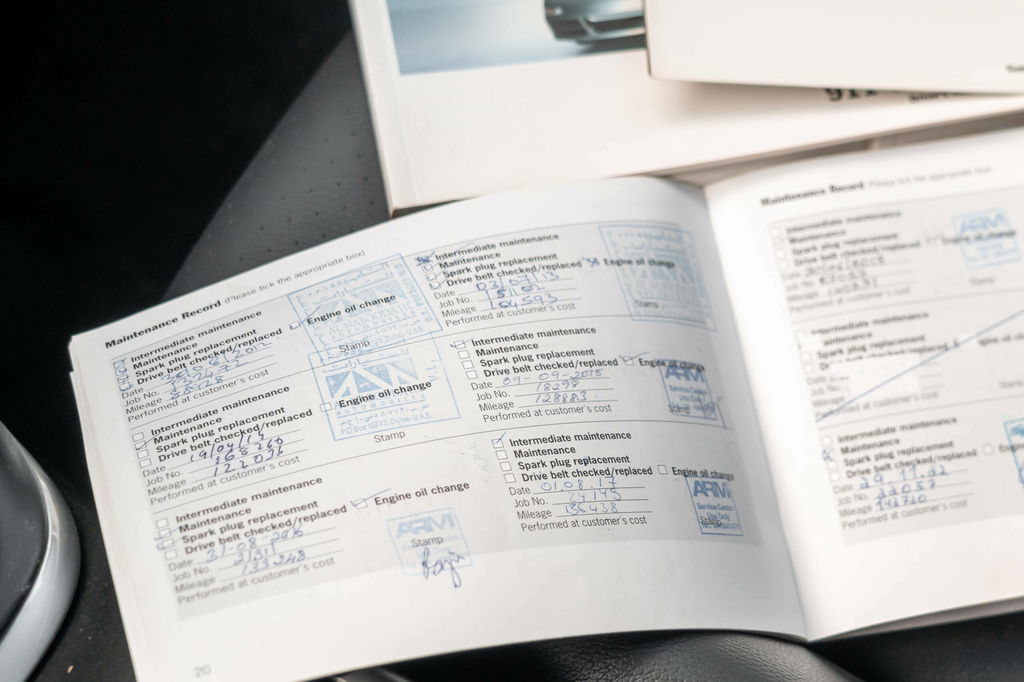 911
Maintenance Record (Please tick the appropriate box)
Intermediate maintenance
Maintenance
Spark plug replacement
Drive belt checked/replaced
Engine oil change
Date
Job No.
Mileage
Performed at customer's cost
Stamp
Intermediate maintenance
Maintenance
Spark plug replacement
Drive belt checked/replaced
Engine oil change
Date 03/07/13
Job No.
Mileage 104593
Performed at customer's cost
Stamp
Intermediate maintenance
Maintenance
Spark plug replacement
Drive belt checked/replaced
Engine oil change
Date 19/04/15
Job No. 168260
Mileage 122096
Performed at customer's cost
AUTOMOBILES
UAE
Stamp
Intermediate maintenance
Maintenance
Spark plug replacement
Drive belt checked/replaced
Engine oil change
Date 09-09-2015
Job No. 18298
Mileage 128883
Performed at customer's cost
ARM
Service Center
Stamp
Intermediate maintenance
Maintenance
Spark plug replacement
Drive belt checked/replaced
Engine oil change
Date 31-08-2016
Job No.
Mileage 133348
Performed at customer's cost
ARM
Stamp
Intermediate maintenance
Maintenance
Spark plug replacement
Drive belt checked/replaced
Engine oil change
Date 01 08.17
Job No. 24145
Mileage 136438
Performed at customer's cost
ARM
Service Center
Use Only
Stamp
20
Maintenance Record (Please tick the appropriate box)
Intermediate maintenance
Maintenance
Spark plug replacement
Drive belt checked/replaced
Engine oil change
Date
Job No.
Mileage
Performed at customer's cost
ARM
Stamp
Intermediate maintenance
Maintenance
Spark plug replacement
Drive belt
Date
Job No.
Mileage
Performed at customer's cost
Stamp
Intermediate maintenance
Maintenance
Spark plug replacement
Drive belt checked/replaced
Date 29.11.22
Job No. 22057
Mileage
Performed at customer's cost